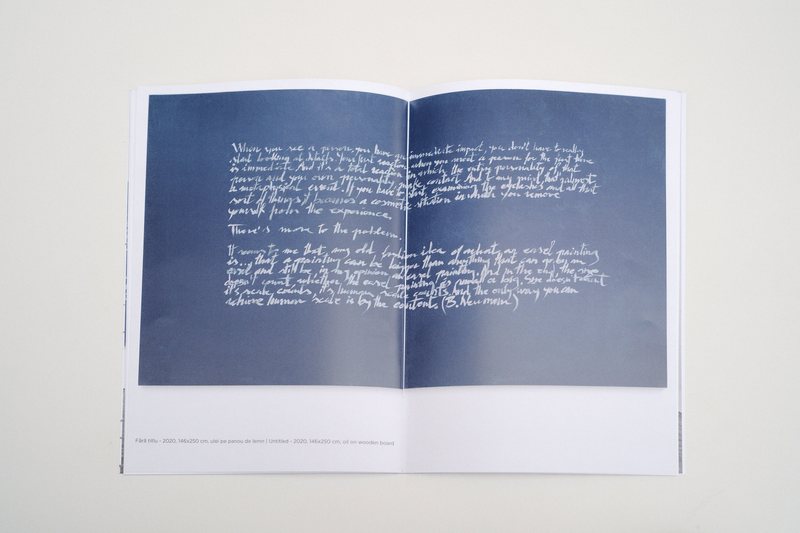 When you see a person, you have an immediate impact, you don't have to really
start looking at details. Your first reaction when you meet a person for the first time
is immediate. And it's a total reaction in which the entire personality of that
person and your own personality make contact. And to my mind that's almost
a metaphysical event. If you have to start examining the eyelashes and all that
sort of things, it becomes a cosmetic situation in which you remove
yourself from the experience.
There's more to the problem.
It seems to me that any old fashion idea of what an easel painting
is... that a painting can be larger than anything that can go by an
easel and still be, in my opinion, an easel painting. And in the end, the size
doesn't count. whether the easel painting is small or big, size doesn't count
it's scale counts, it's human scale counts and the only way you can
achieve human scale is by the content. (B. Neumann)
Fără titlu - 2020, 146x250 cm, ulei pe panou de lemn | Untitled - 2020, 146x250 cm, oil on wooden board